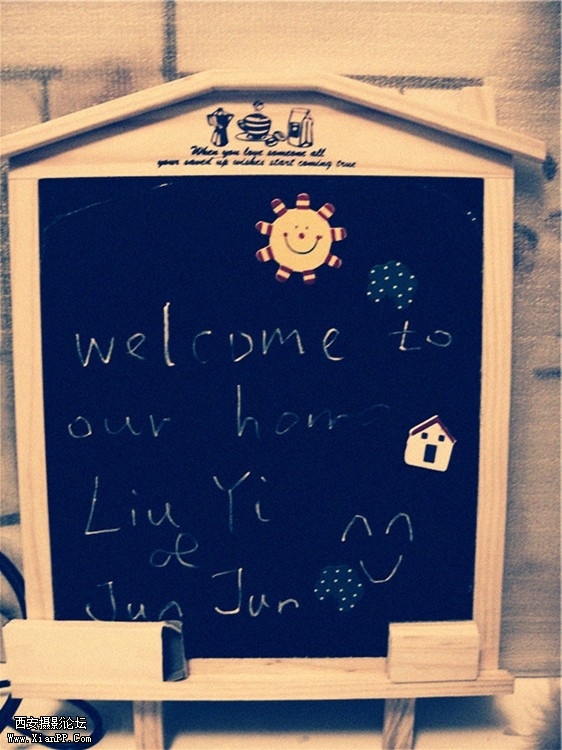 When you love someone all
your saved up wishes start coming true
welcome to
our home
Liu Yi
&
Jun Jun
西安摄影论坛
Www.XianPP.Com